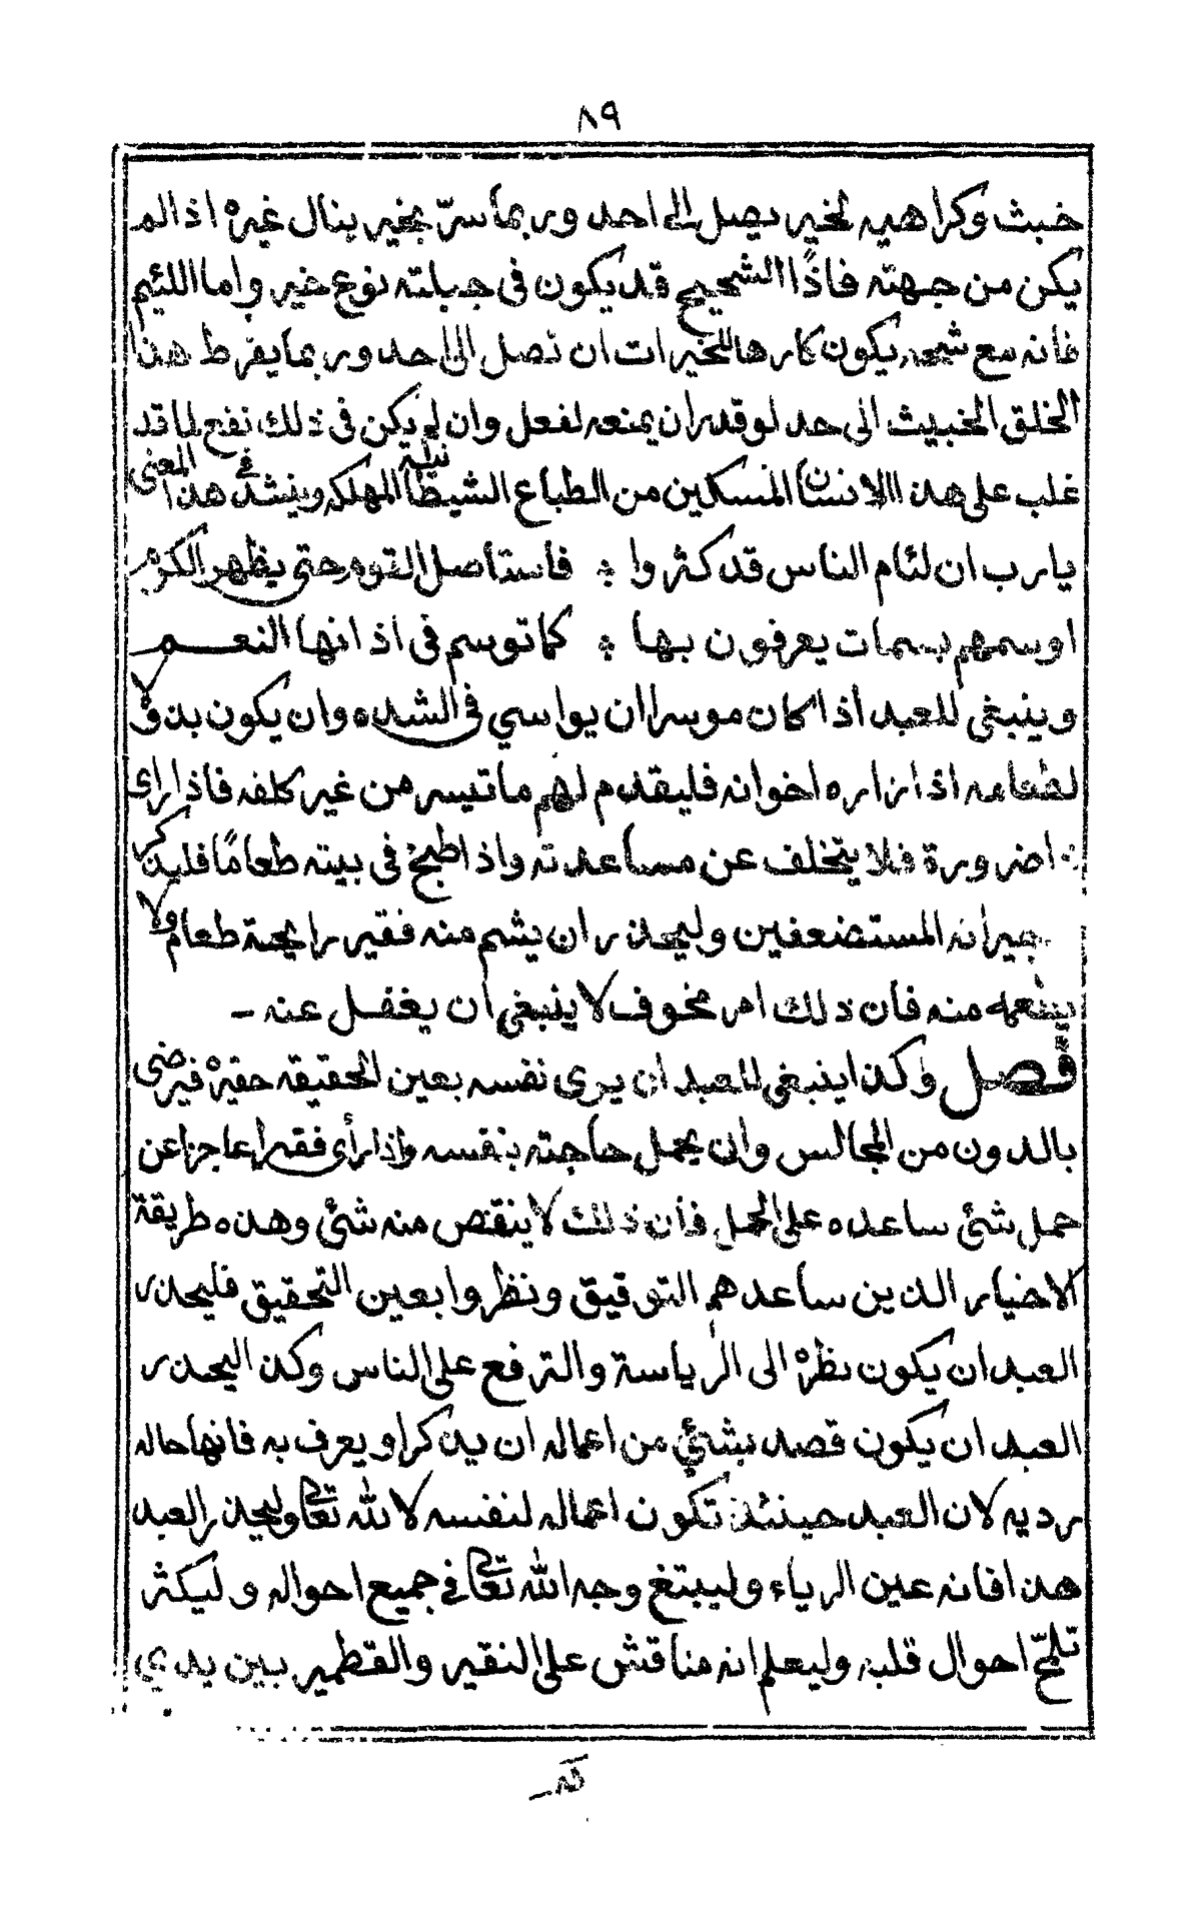 ٨٩
خبث وكراهيه لخير يصل الى احد وربما سرّ بخير ينال غيره اذا لم
يكن من جهته فاذًا الشحيح قد يكون فى جبلته نوع خير واما اللئيم
فانه مع شحه يكون كارها للخيرات ان تصل الى احد وربما يفرط هذا
الخلق الخبيث الى حد لو قدر ان يمنعه لفعل وان لم يكن فى ذلك نفع لما قد
غلب على هذا الانسان المسكين من الطباع الشيطانية المهلكه وينشد فى هذا المعنى
يا رب ان لئام الناس قد كثروا فاستاصل القوم حتى يظهر الكرم
او سمهم بسمات يعرفون بها كما توسم فى اذانها النعم
وينبغى للعبد اذا كان موسرا ان يواسي فى الشده وان يكون بذولا
لطعامه اذا زاره اخوانه فليقدم لهم ما تيسر من غير كلفه فاذا راى
ذا ضرورة فلا يتخلف عن مساعدته واذا طبخ فى بيته طعامًا فليذكر
جيرانه المستضعفين وليحذر ان يشم منه فقير رايحة طعام ولا
يطعمه منه فان ذلك امر مخوف لا ينبغى ان يغفل عنه -
فصل وكذا ينبغى للعبد ان يرى نفسه بعين الحقيقه حقيره فيرضى
بالدون من المجالس وان يحمل حاجته بنفسه واذا رأى فقيرا عاجزا عن
حمل شئ ساعده على الحمل فأن ذلك لا ينقص منه شئ وهذه طريقة
الاخيار الذين ساعدهم التوفيق ونظروا بعين التحقيق فليحذر
العبد ان يكون نظره الى الرياسة والترفع على الناس وكذا ليحذر
العبد ان يكون قصد بشئ من اعماله ان يذكر او يعرف به فانها حاله
رديه لان العبد حينئذ تكون اعماله لنفسه لا لله تعالى وليحذر العبد
هذا فانه عين الرياء وليبتغ وجه الله تعالى فى جميع احواله وليكثر
تلمّح احوال قلبه وليعلم انه مناقش على النقير والقطمير بين يدي